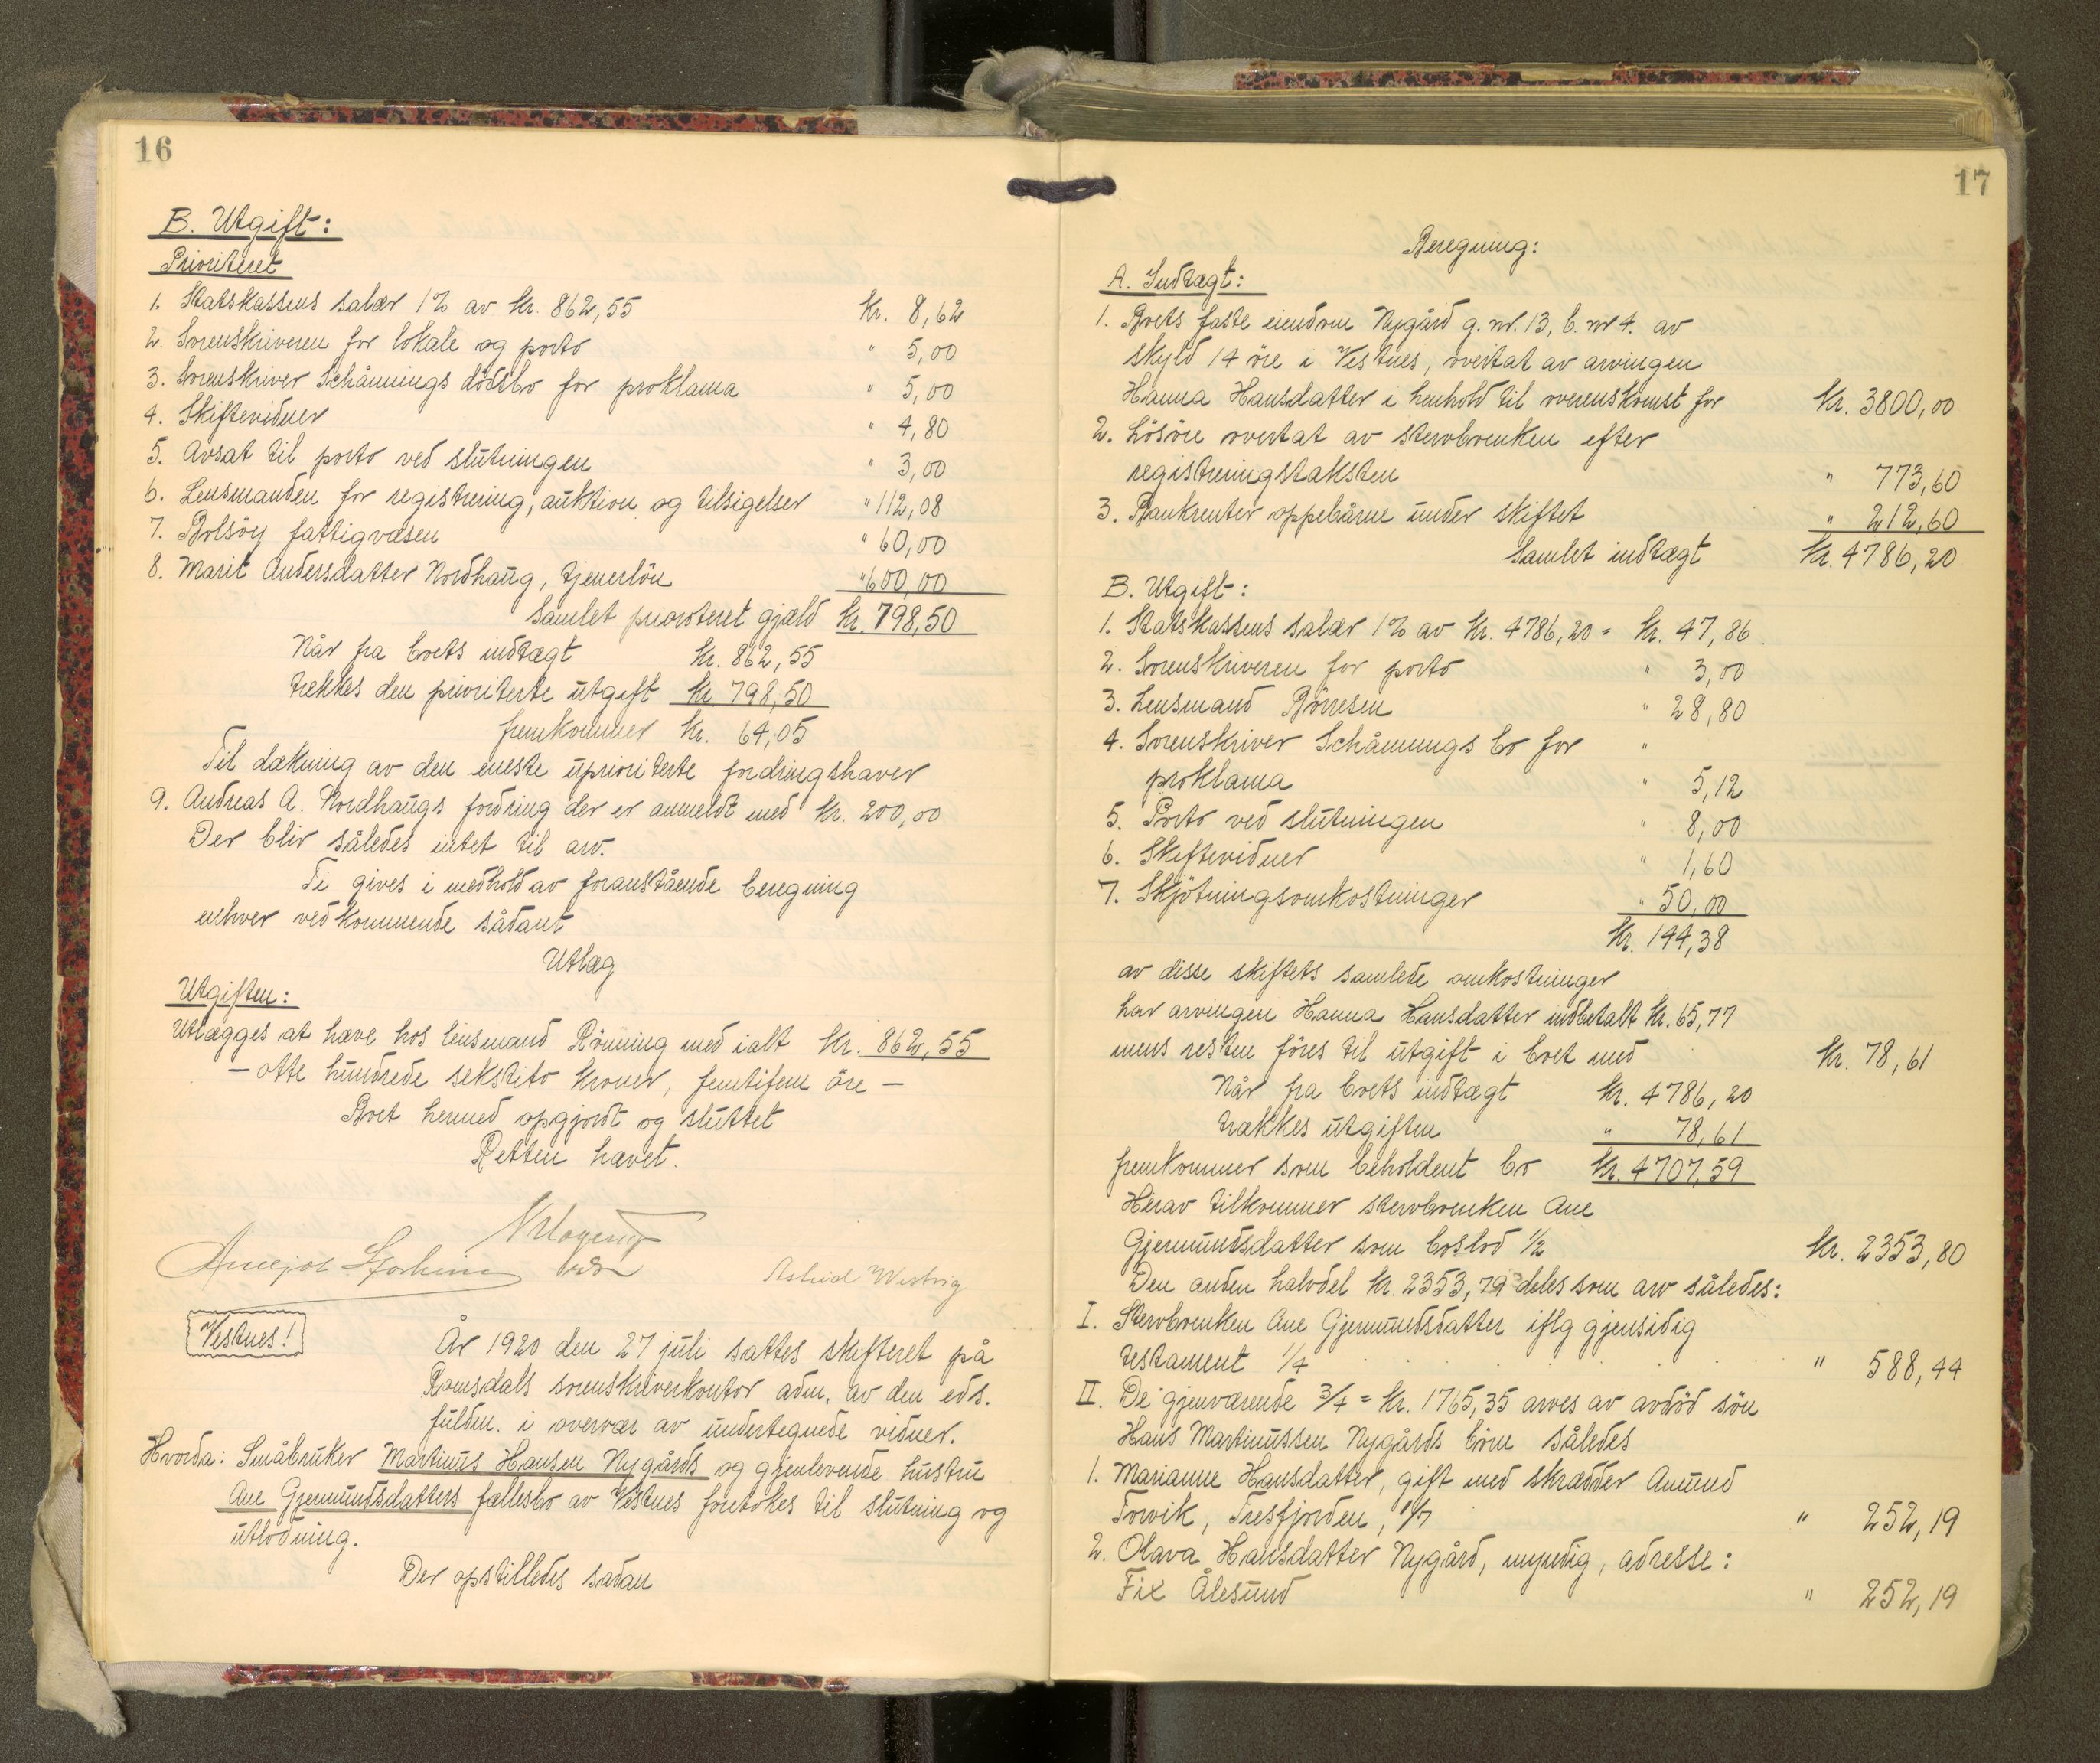 16
B. Utgift:
Prioritert
1. Statskassens salær 1% av kr. 862,55 kr. 8,62
2. Sorenskriveren for lokale og porto " 5,00
3. Sorenskriver Schånnings dödsbo for proklama " 5,00
4. Skiftevidner " 4,80
5. Avsat til porto ved slutningen " 3,00
6. Lensmanden for registrering, auktion og tilsigelser " 112,08
7. Bolsöy fattigvæsen " 60,00
8. Marit Andersdatter Nordhaug, tjenerlön " 600,00
Samlet prioritert gjæld kr. 798,50
Når fra boets indtægt kr. 862,55
trekkes den prioriterte utgift kr 798,50
fremkommer kr. 64,05
Til dækning av den eneste uprioriterte fordringshaver
9. Andreas A. Nordhaugs fordring der er anmeldt med kr. 200,00
Der blir således intet til arv.
Ti gives i medhold av foranstående beregning
enhver vedkommende sådant
Utlæg
Utgiften:
Utlægges at hæve hos lensmand Rönning med ialt kr. 862,55
- otte hundrede sekstito kroner, femtifem öre -
Boet hermed opgjordt og sluttet
Retten hævet.
Astrid Westvig
Vestnes!
År 1920 den 27 juli sattes skifteret på
Romsdals sorenskriverkontor adm. av den eds.
fuldm. i overvær av undertegnede vidner.
Hvorda: Småbruker Martinus Hansen Nygårds og gjenlevende hustru
Ane Gjermundsdatters fællesbo av Vestnes foretokes til slutning og
utlodning.
Der opstilledes sådan
17
Beregning:
A. Indtægt:
1. Boets faste eiendom Nygård g. nr. 13, b. nr 4. av
skyld 14 öre i Vestnes, overtat av arvingen
Hanna Hansdatter i henhold til overenskomst for kr. 3800,00
2. Lösöre overtat av stervboenken efter
registreringstaksten " 773,60
3. Bankrenter oppebårne under skiftet " 212,60
Samlet indtægt kr. 4786,20
B. Utgift:
1. Statskassens salær 1% av kr. 4786,20 = kr. 47,86
2. Sorenskriveren for porto " 3,00
3. Lensmand Börresen " 28,80
4. Sorenskriver Schånnings bo for "
proklama " 5,12
5. Porto ved slutningen " 8,00
6. Skiftevidner " 1,60
7. Skjötningsomkostninger " 50,00
kr. 144,38
av disse skiftets samlede omkostninger
har arvingen Hanna Hansdatter indbetalt kr. 65,77
mens resten föres til utgift i boet med kr. 78,61
Når fra boets indtægt kr. 4786,20
trækkes utgiften " 78,61
fremkommer som beholdent bo kr. 4707,59
Herav tilkommer stervboenken Ane
Gjermundsdatter som boslod 1/2 kr. 2353,80
Den anden halvdel kr. 2353,79 deles som arv således:
I. Stervboenken Ane Gjermundsdatter iflg gjensidig
testament 1/4 " 588,44
II. De gjenværende 3/4 = kr. 1765,35 arves av avdöd sön
Hans Martinussen Nygårds börn således
1. Marianne Hansdatter, gift med skrædder Amund
Torvik, Tresfjorden, 1/7 " 252,19
2. Olava Hansdatter Nygård, umyndig, adresse:
Fix Ålesund " 252,19